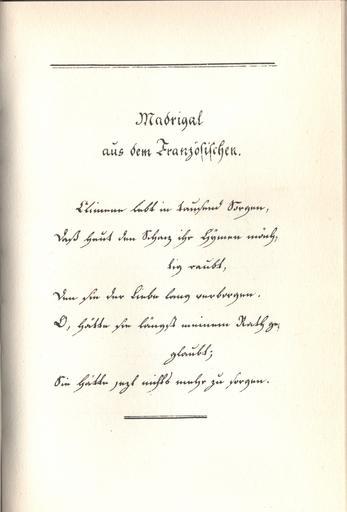 Madrigal
aus dem Französischen.
Climene lebt in tausend Sorgen,
Daß heut den Schaz ihr Hymen mäch-
tig raubt,
Den sie der Liebe lang verborgen.
O, hätte sie längst meinem Rath ge-
glaubt;
Sie hätte jezt nichts mehr zu sorgen.